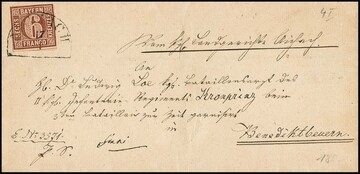 BAYERN
SECHS
KREUZER
6
FRANCO
Vom Kgl. Landgerichte Aichach
An
Hb. Dr. Ludwig Loe kgl. Bataillonsarzt des
II. Kgl. Infanterie-Regiments Kronprinz beim
Bataillon zur Zeit garnison
in
E. No. 3571.
Benediktbeuern.